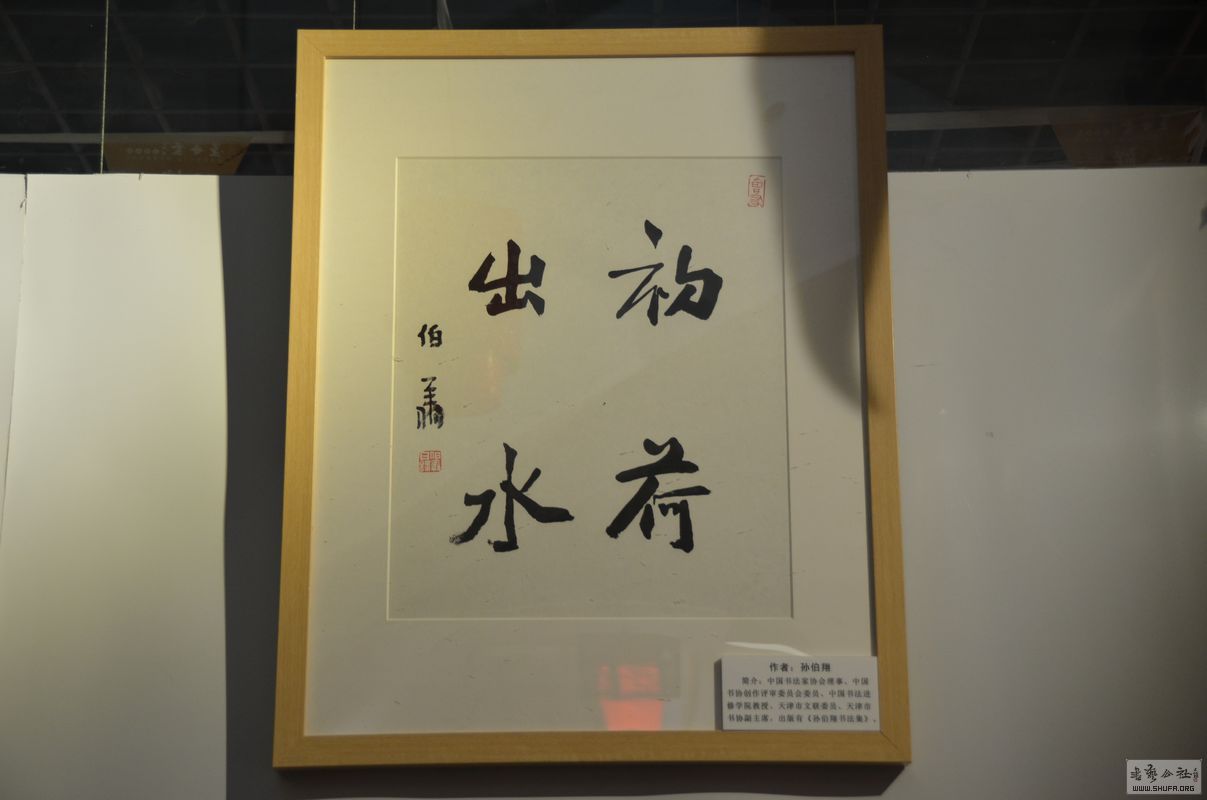 初荷
出水
伯翔
作者：孙伯翔
简介：中国书法家协会理事、中国
书协创作评审委员会委员、中国书法进
修学院教授、天津市文联委员、天津市
书协副主席。出版有《孙伯翔书法集》。
书艺公社
WWW.SHUFA.ORG